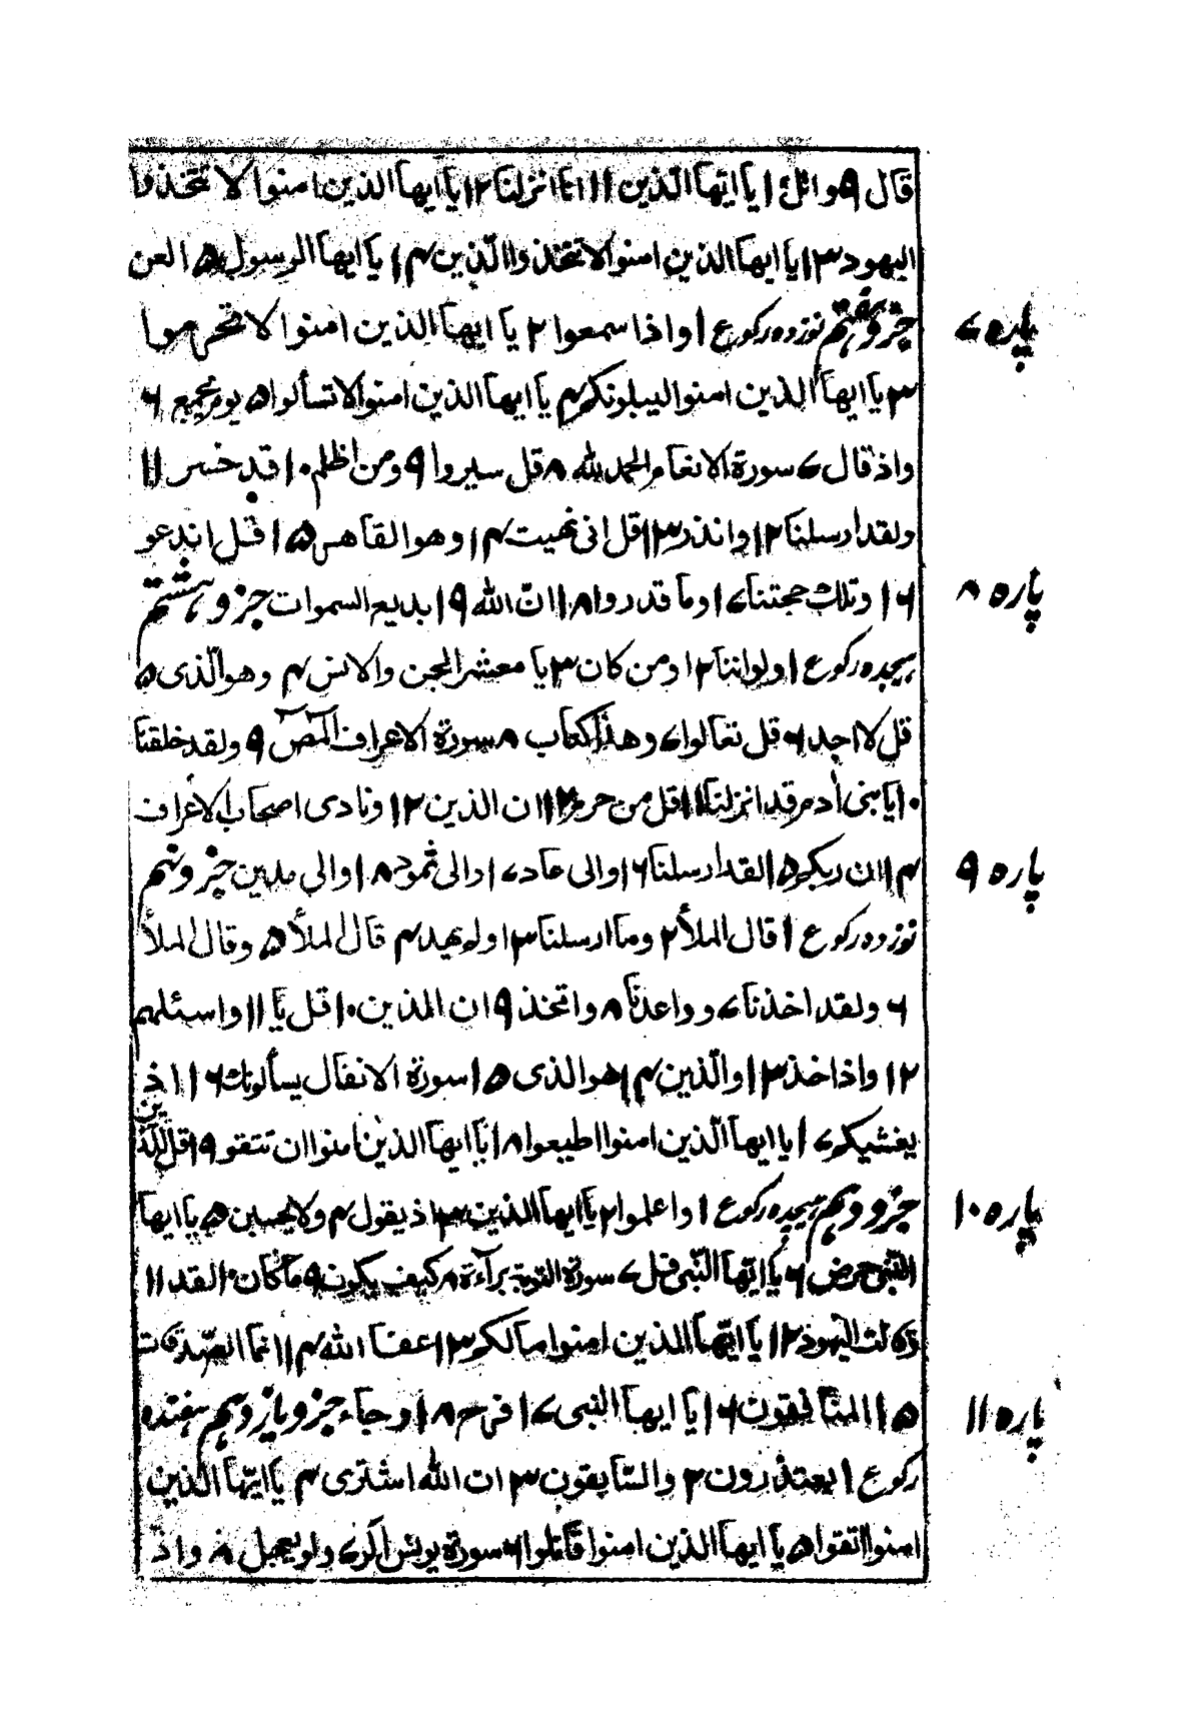 قال ۹ واتل ۱۰ یا ایها الذین ۱۱ انا انزلنا ۱۲ یا ایها الذین امنوا لا تتخذوا
الیهود ۱۳ یا ایها الذین امنوا لا تتخذوا الذین ۱۴ یا ایها الرسول ۱۵ لعن
پاره ۷
جزو هفتم نوزده رکوع ۱ واذا سمعوا ۲ یا ایها الذین امنوا لا تحرموا
۳ یا ایها الذین امنوا لیبلونکم ۴ یا ایها الذین امنوا لا تسألوا ۵ یوم یجمع ۶
واذ قال ۷ سورة الانعام الحمد لله ۸ قل سیروا ۹ ومن اظلم ۱۰ قد خسر ۱۱
ولقد ارسلنا ۱۲ وانذر ۱۳ قل انی نهیت ۱۴ وهو القاهر ۱۵ قل اندعو
پاره ۸
۱۶ وتلک حجتنا ۱۷ وما قدروا ۱۸ ان الله ۱۹ بدیع السموات جزو هشتم
هیجده رکوع ۱ ولو اننا ۲ اومن کان ۳ یا معشر الجن والانس ۴ وهو الذی ۵
قل لا اجد ۶ قل تعالوا ۷ وهذا کتاب ۸ سورة الاعراف المص ۹ ولقد خلقنا
۱۰ یا بنی آدم قد انزلنا ۱۱ قل من حرم ۱۲ ان الذین ۱۳ ونادی اصحاب الاعراف
پاره ۹
۱۴ ان ربکم ۱۵ لقد ارسلنا ۱۶ والی عاد ۱۷ والی ثمود ۱۸ والی مدین جزو نهم
نوزده رکوع ۱ قال الملأ ۲ وما ارسلنا ۳ اولم یهد ۴ قال الملأ ۵ وقال الملأ
۶ ولقد اخذنا ۷ وواعدنا ۸ واتخذ ۹ ان الذین ۱۰ قل یا ۱۱ واسئلهم
۱۲ واذ اخذ ۱۳ والذین ۱۴ هو الذی ۱۵ سورة الانفال یسألونک ۱۶ اذ
یغشیکم ۱۷ یا ایها الذین امنوا اطیعوا ۱۸ یا ایها الذین امنوا ان تتقوا ۱۹ قل للذین
پاره ۱۰
جزو دهم هیجده رکوع ۱ واعلموا ۲ یا ایها الذین ۳ اذ یقول ۴ ولا یحسبن ۵ یا ایها
النبی حرض ۶ یا ایها النبی قل ۷ سورة التوبة براءة ۸ کیف یکون ۹ ما کان ۱۰ لقد ۱۱
قالت الیهود ۱۲ یا ایها الذین امنوا مالکم ۱۳ عفا الله ۱۴ انما الصدقات
پاره ۱۱
۱۵ المنافقون ۱۶ یا ایها النبی ۱۷ فرح ۱۸ وجاء جزو یازدهم هفده
رکوع ۱ یعتذرون ۲ والسابقون ۳ ان الله اشتری ۴ یا ایها الذین
امنوا اتقوا ۵ یا ایها الذین امنوا قاتلوا ۶ سورة یونس الر ۷ ولو یعجل ۸ واذ